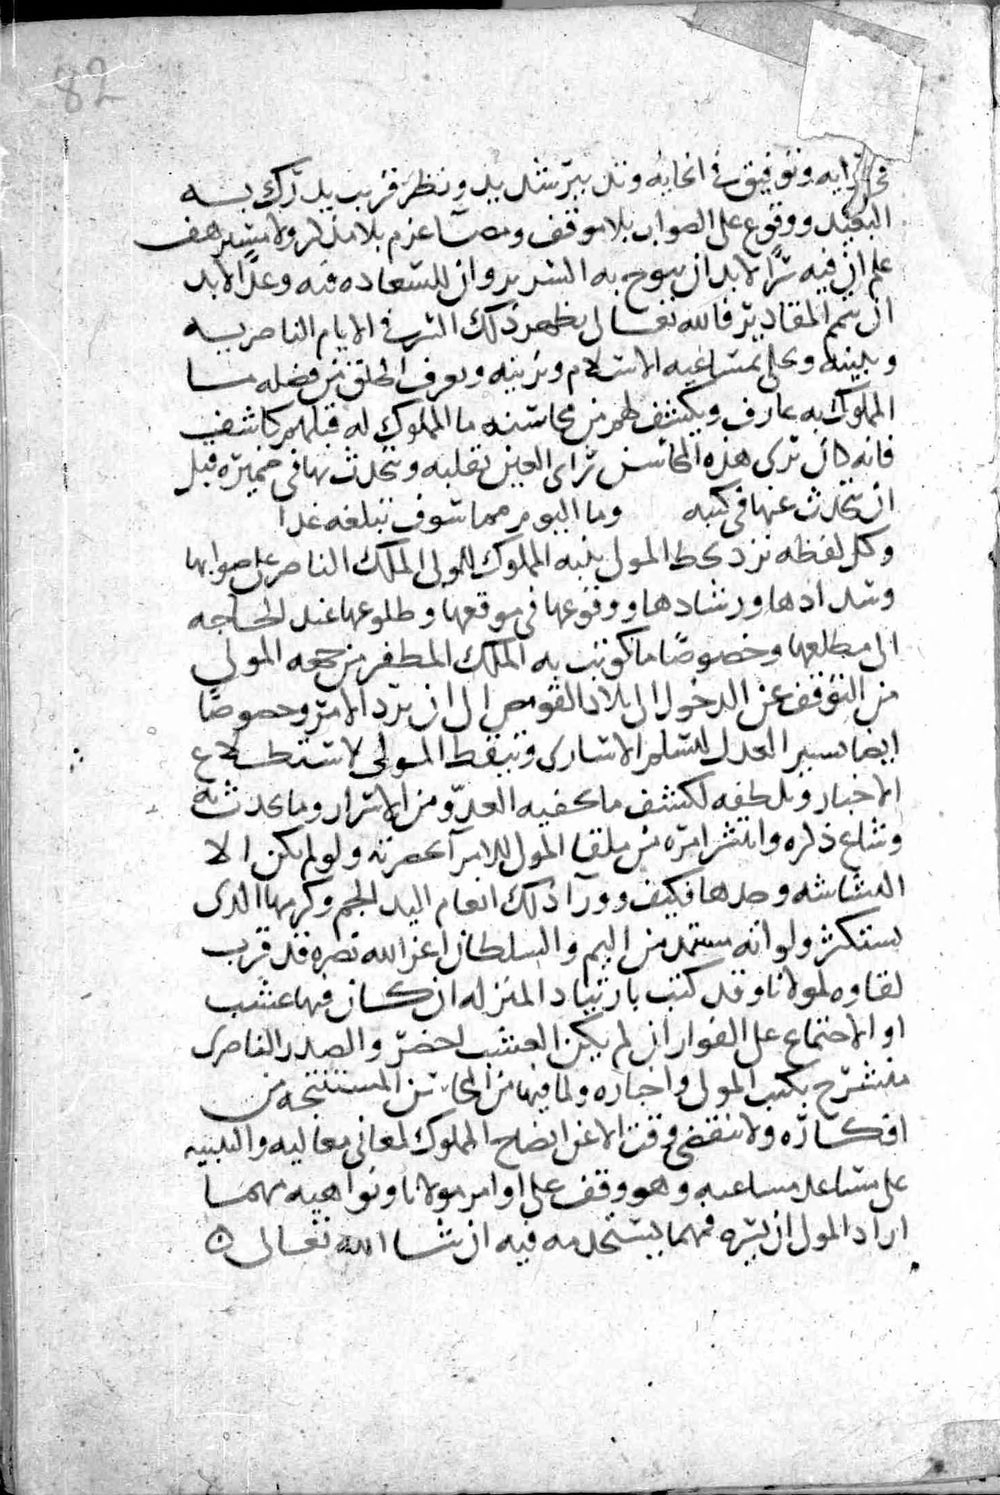 82
في رايه وتوفيق في انحايه وتدبير شديد ونظر قريب يدرك به
البعيد ووقوع على الصواب بلا موقف ومضا عزم بلا مذكر ولا مشير هف
علم ان فيه سرًا لا بد ان يبوح به السرير وان للسعاده فيه وعدًا لا بد
ان يتمم المقادير فالله تعالى يظهر ذلك السر في الايام الناصريه
ويبينه ويحلي بمساعيه الاسلام ويزينه ويعرف الخلق من فضله ما
المملوك به عارف ويكشف لهم من محاسنه ما المملوك له قبلهم كاشف
فانه كان يرى هذه المحاسن راي العين بقلبه ويتحدث بها في ضميره قبل
ان يتحدث عنها في كتبه وما اليوم مما سوف تبلغه غدا
وكل لفظه ترد بخط المولى ينبه المملوك المولى الملك الناصر على صوابها
وسدادها ورشادها ووقوعها في موقعها وطلوعها عند الحاجه
الى مطلعها وخصوصًا ما كوتب به الملك المظفر من جهه المولى
من التوقف عن الدخول الى بلاد القومص الى ان يرد الامر وخصوصًا
ايضا تسيير العدل المسلم الاسارى وتيقظ المولى لاستطلاع
الاخبار وتلطفه لكشف ما يخفيه العدو من الاسرار وما يحدث به
وشاع ذكره وانتشر امره من ملقا المولى للامرا بحضرته ولو لم يكن الا
البشاشه وحدها فكيف وورا ذلك انعام اليد الجم وكرمها الذي
يستكثر ولو انه يستمد من اليم والسلطان اعز الله نصره قد قرب
لقاوه لمولانا وقد كتب بارتياد المنزله ان كان فيها عشب
او الاجتماع على الفوار ان لم يكن العشب لحضر والصدر الناصري
منشرح بكتب المولى واخباره ولما فيها من المحاسن المستنتجه من
افكاره ولا ينقضي وقت الا عن ايضاح المملوك لمعاني معاليه والتنبيه
على مساعد مساعيه وهو وقف على اوامر مولانا ونواهيه مهما
اراد المولى ان يسره فمهما يستخدمه فيه ان شا الله تعالى ه